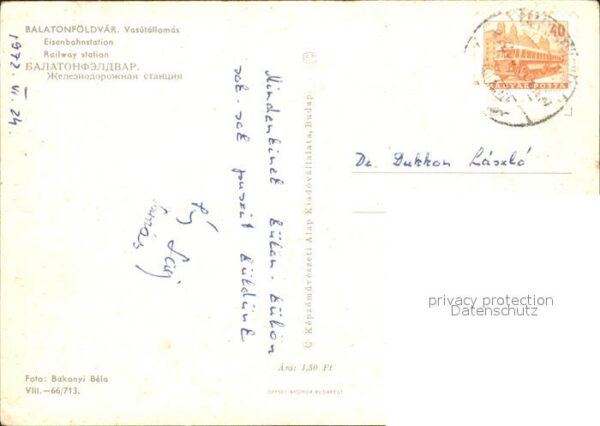 BALATONFÖLDVÁR. Vasútállomás
Eisenbahnstation
Railway station
БАЛАТОНФЭЛДВАР.
Железнодорожная станция
1972. VI. 24.
Mindenkinek külön-külön
sok-sok puszit küldünk
Tamás
© Képzőművészeti Alap Kiadóvállalata, Budapest
40
MAGYAR POSTA
Dr. Dukkon László
privacy protection
Datenschutz
Ára: 1,50 Ft
Foto: Bakonyi Béla
VIII.—66/713.
OFFSET NYOMDA BUDAPEST